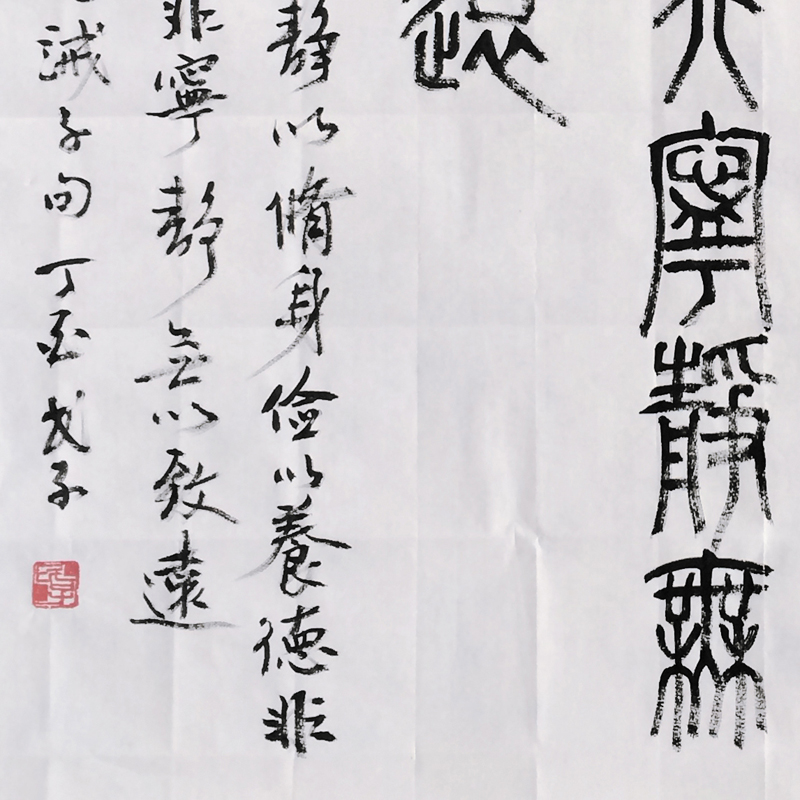 寧靜無
遠
靜以脩身儉以養德非
非寧靜無以致遠
誡子句丁酉戈子